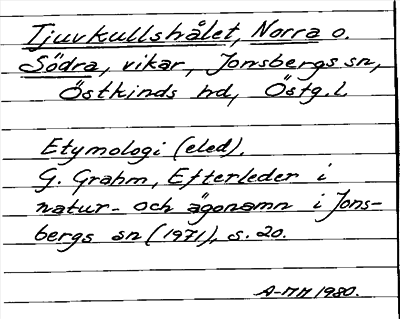 Tjuvkullshålet, Norra o.
Södra, vikar, Jonsbergs sn,
Östkinds hd, Östg. l.
Etymologi (eled).
G. Grahm, Efterleder i
natur- och ägonamn i Jons-
bergs sn (1971), s. 20.
A-MM 1980.